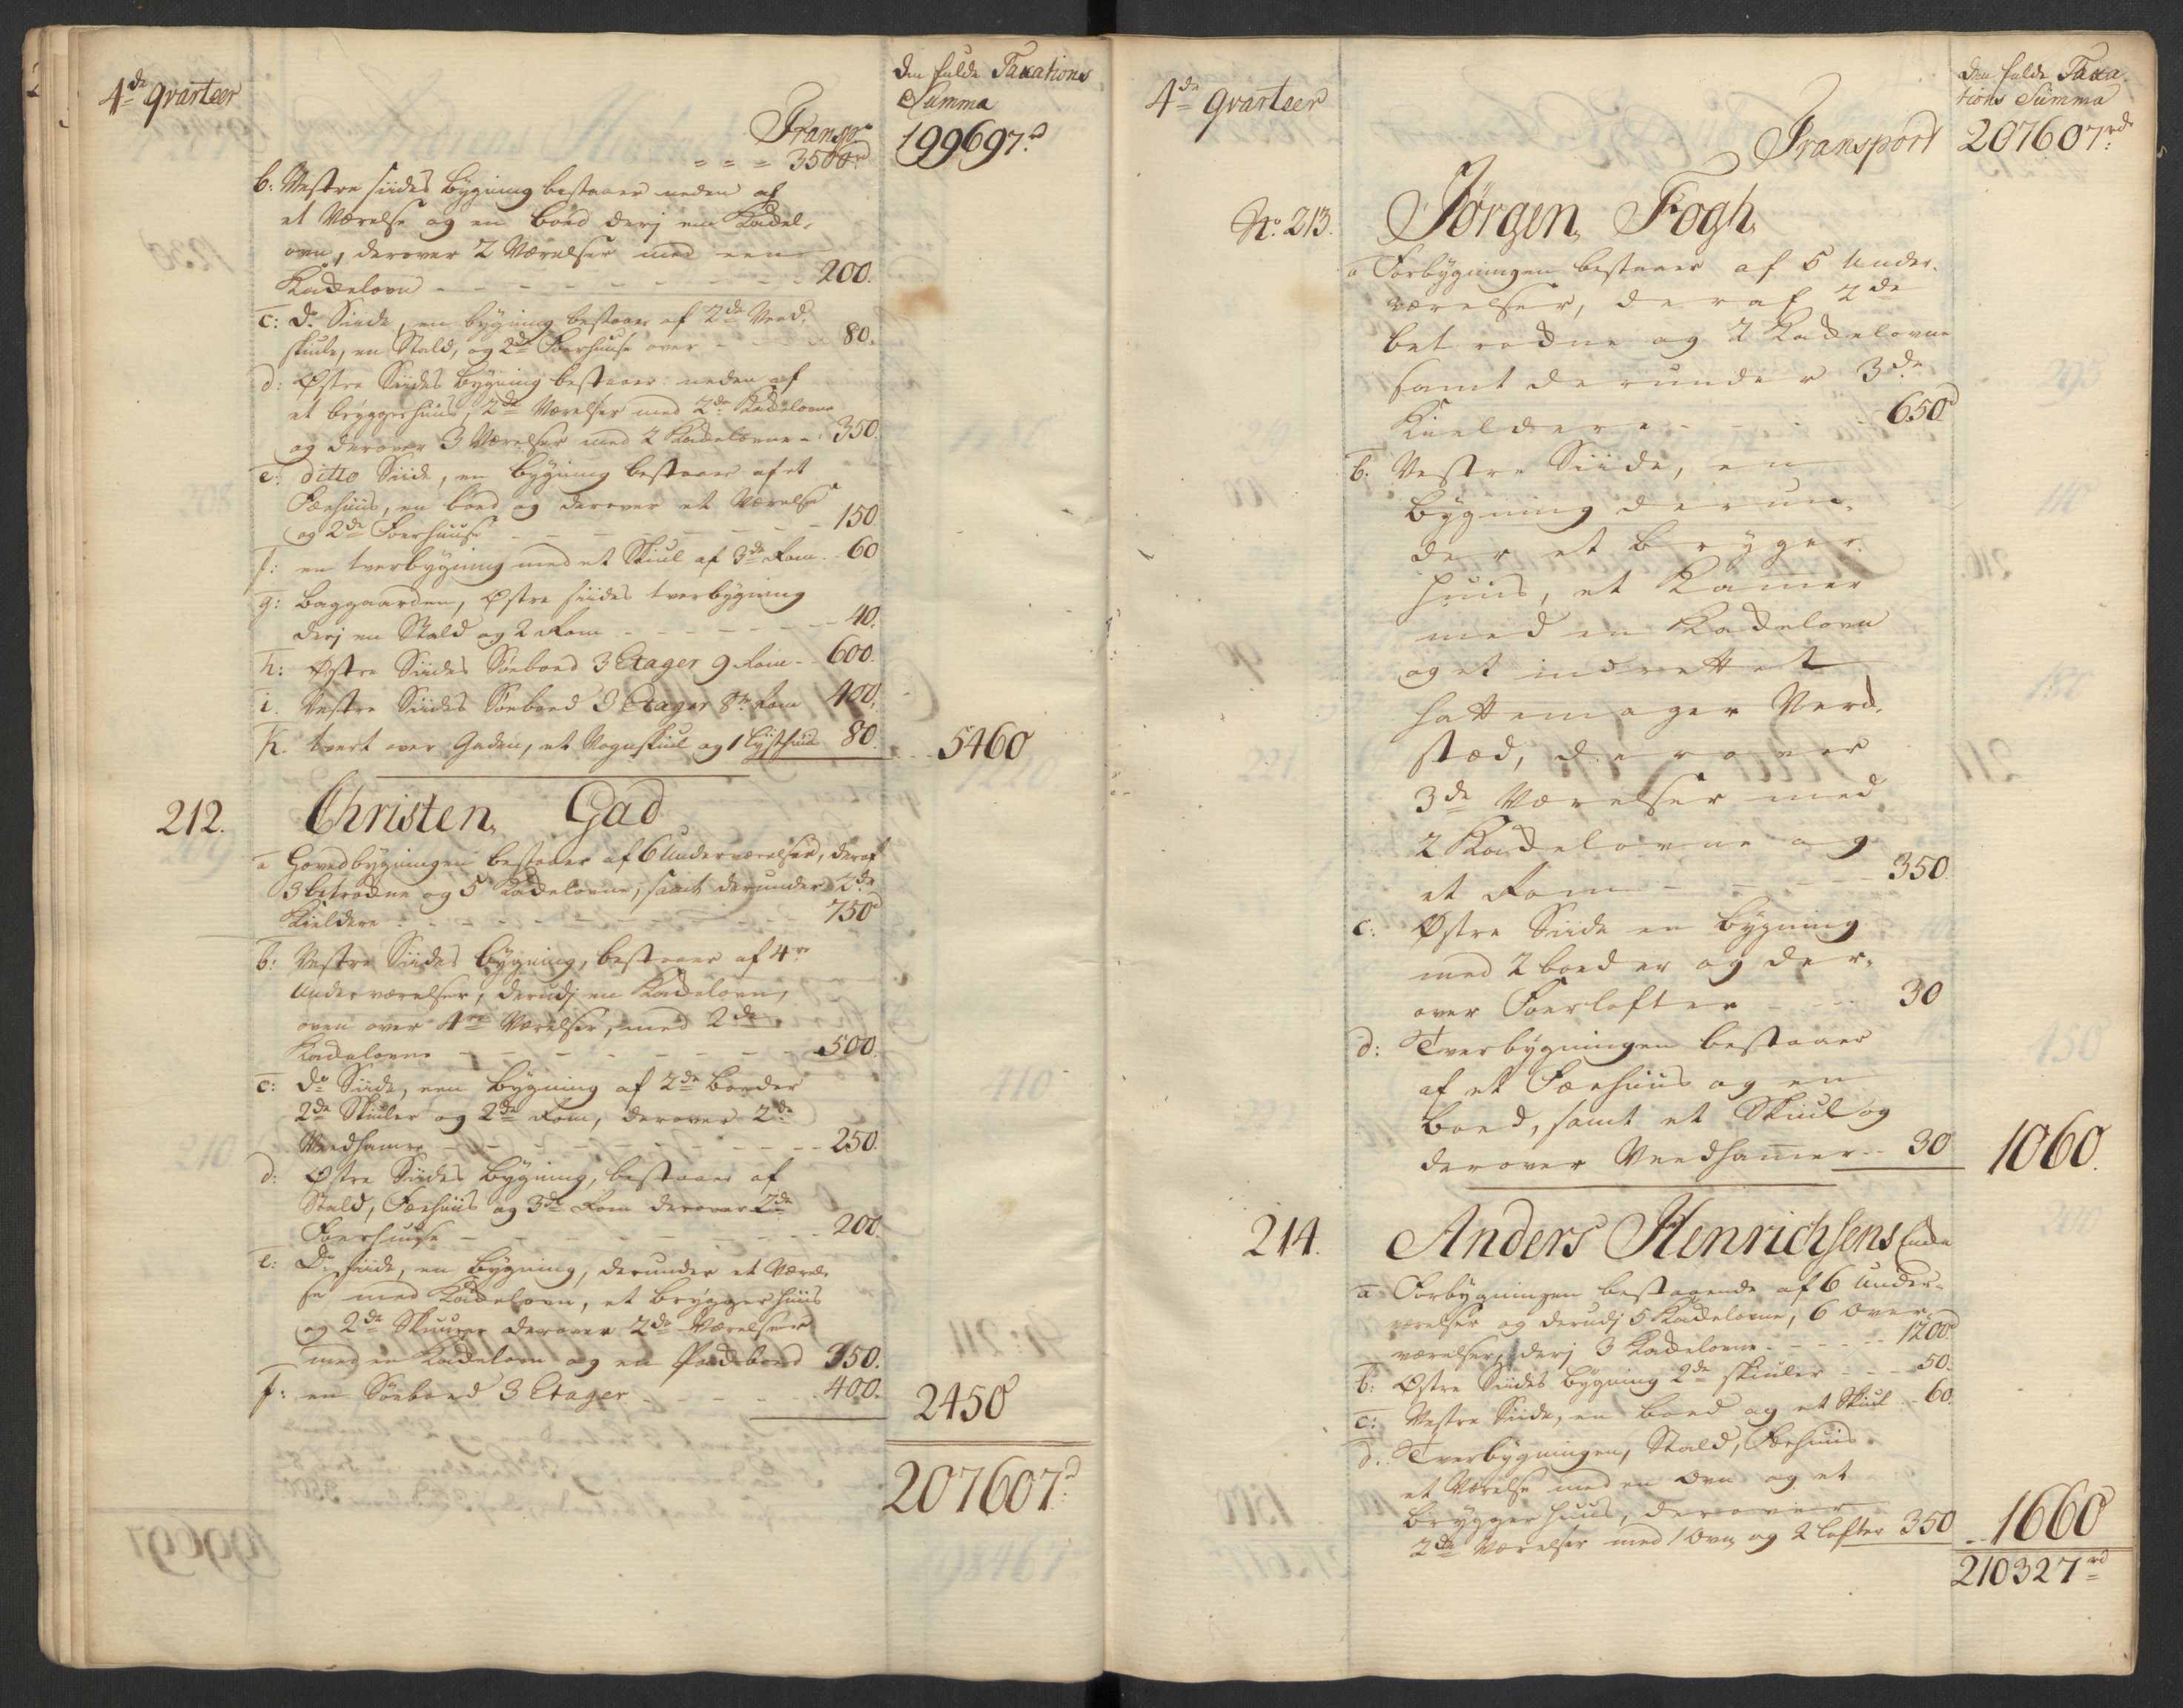 4de qvarteer
den fulde Taxations
Summa
Transp:
= = = 3500rd
199697rd
b: Vestre siides bygning bestaaer neden af
et Værelse og en boed derj en Kadel-
ovn, derover 2 Værelser med een
Kadelovn - - - 200.
c: do Siide, en bygning bestaaer af 2de Veed-
skiule, en Stald, og 2de Foerhuuse over - - 80.
d: Østre Siides bygning bestaaer neden af
et bryggerhuus, 2de Værelser med 2de Kadelovne
og derover 3 Værelser med 2 Kadelovne - 350.
e: ditto Siide, en bygning bestaaer af et
Fæehuus, en boed og derover et Værelse
og 2de Foerhuuse - - - 150
f: en tverbygning med et Skiul af 3de Rom - 60
g: baggaarden, Østre siides tverbygning
derj en Stald og 2 Rom - - - 40.
h: Østre Siides Søeboed 3 Etager 9 Rom - 600.
i. Vestre Siides Søeboed 3 Etager 8te Rom 400.
K. tvert over Gaden, et Vognskiul og 1 Lysthuus 80. 5460
212. Christen Gad
a Hovedbygningen bestaaer af 6 Underværelser, deraf
3 betrædne og 5 Kadelovne, samt derunder 2de
Kieldere - - - 750d
b: Vestre Siides bygning, bestaaer af 4re
Underværelser, derudj en Kadelovn,
oven over 4re Værelser, med 2de
Kadelovne - - - 500.
c: do Siide, een bygning af 2de Boeder
2de Skiuler og 2de Rom, derover 2de
Veedhamre - - - 250.
d: Østre Siides bygning, bestaaer af
Stald, Fæehuus og 3de Rom derover 2de
Foerhuuse - - - 200.
e: Do siide, en bygning, derunder et Værel-
se med Kadelovn, et bryggerhuus
og 2de Skuurer derover 2de Værelser
med en Kadelovn og en Pakboed 350.
f: en Søeboed 3 Etager - - - 400.
2450
207607d
4de qvarteer
den fulde Taxa-
tions Summa
Transport 207607rd
No. 213. Jørgen Fogh
a Forbygningen bestaaer af 5 Under-
værelser, deraf 2de
betrædne og 2 Kadelovne
samt derunder 3de
Kieldere - - - 650d
b. Vestre Siide, en
bygning derun-
der et brygger-
huus, et Kamer
med en Kadelovn
og et indrettet
Hattemager Verk-
stæd, derover
3de Værelser med
2 Kadelovne og
et Rom - - - 350.
c. Østre Siide en bygning
med 2 boeder og der-
over Foerlofter - - - 30
d: Tverbygningen bestaaer
af et Fæehuus og en
boed, samt et Skiul og
derover Veedhamer - 30
1060.
214. Anders Henrichsens Enke
a Forbygningen bestaaende af 6 Under-
værelser og derudj 5 Kadelovne, 6 Over-
værelser, derj 3 Kadelovne - - - 1200d
b: Østre Siides bygning 2de skiuler - - - 50.
c: Vestre Siide, en boed og et Skiul - 60.
d. Tverbygningen, Stald, Fæehuus
et Værelse med en Ovn og et
bryggerhuus, derover
2de Værelser med 1 Ovn og 2 Lofter 350
1660
210327rd